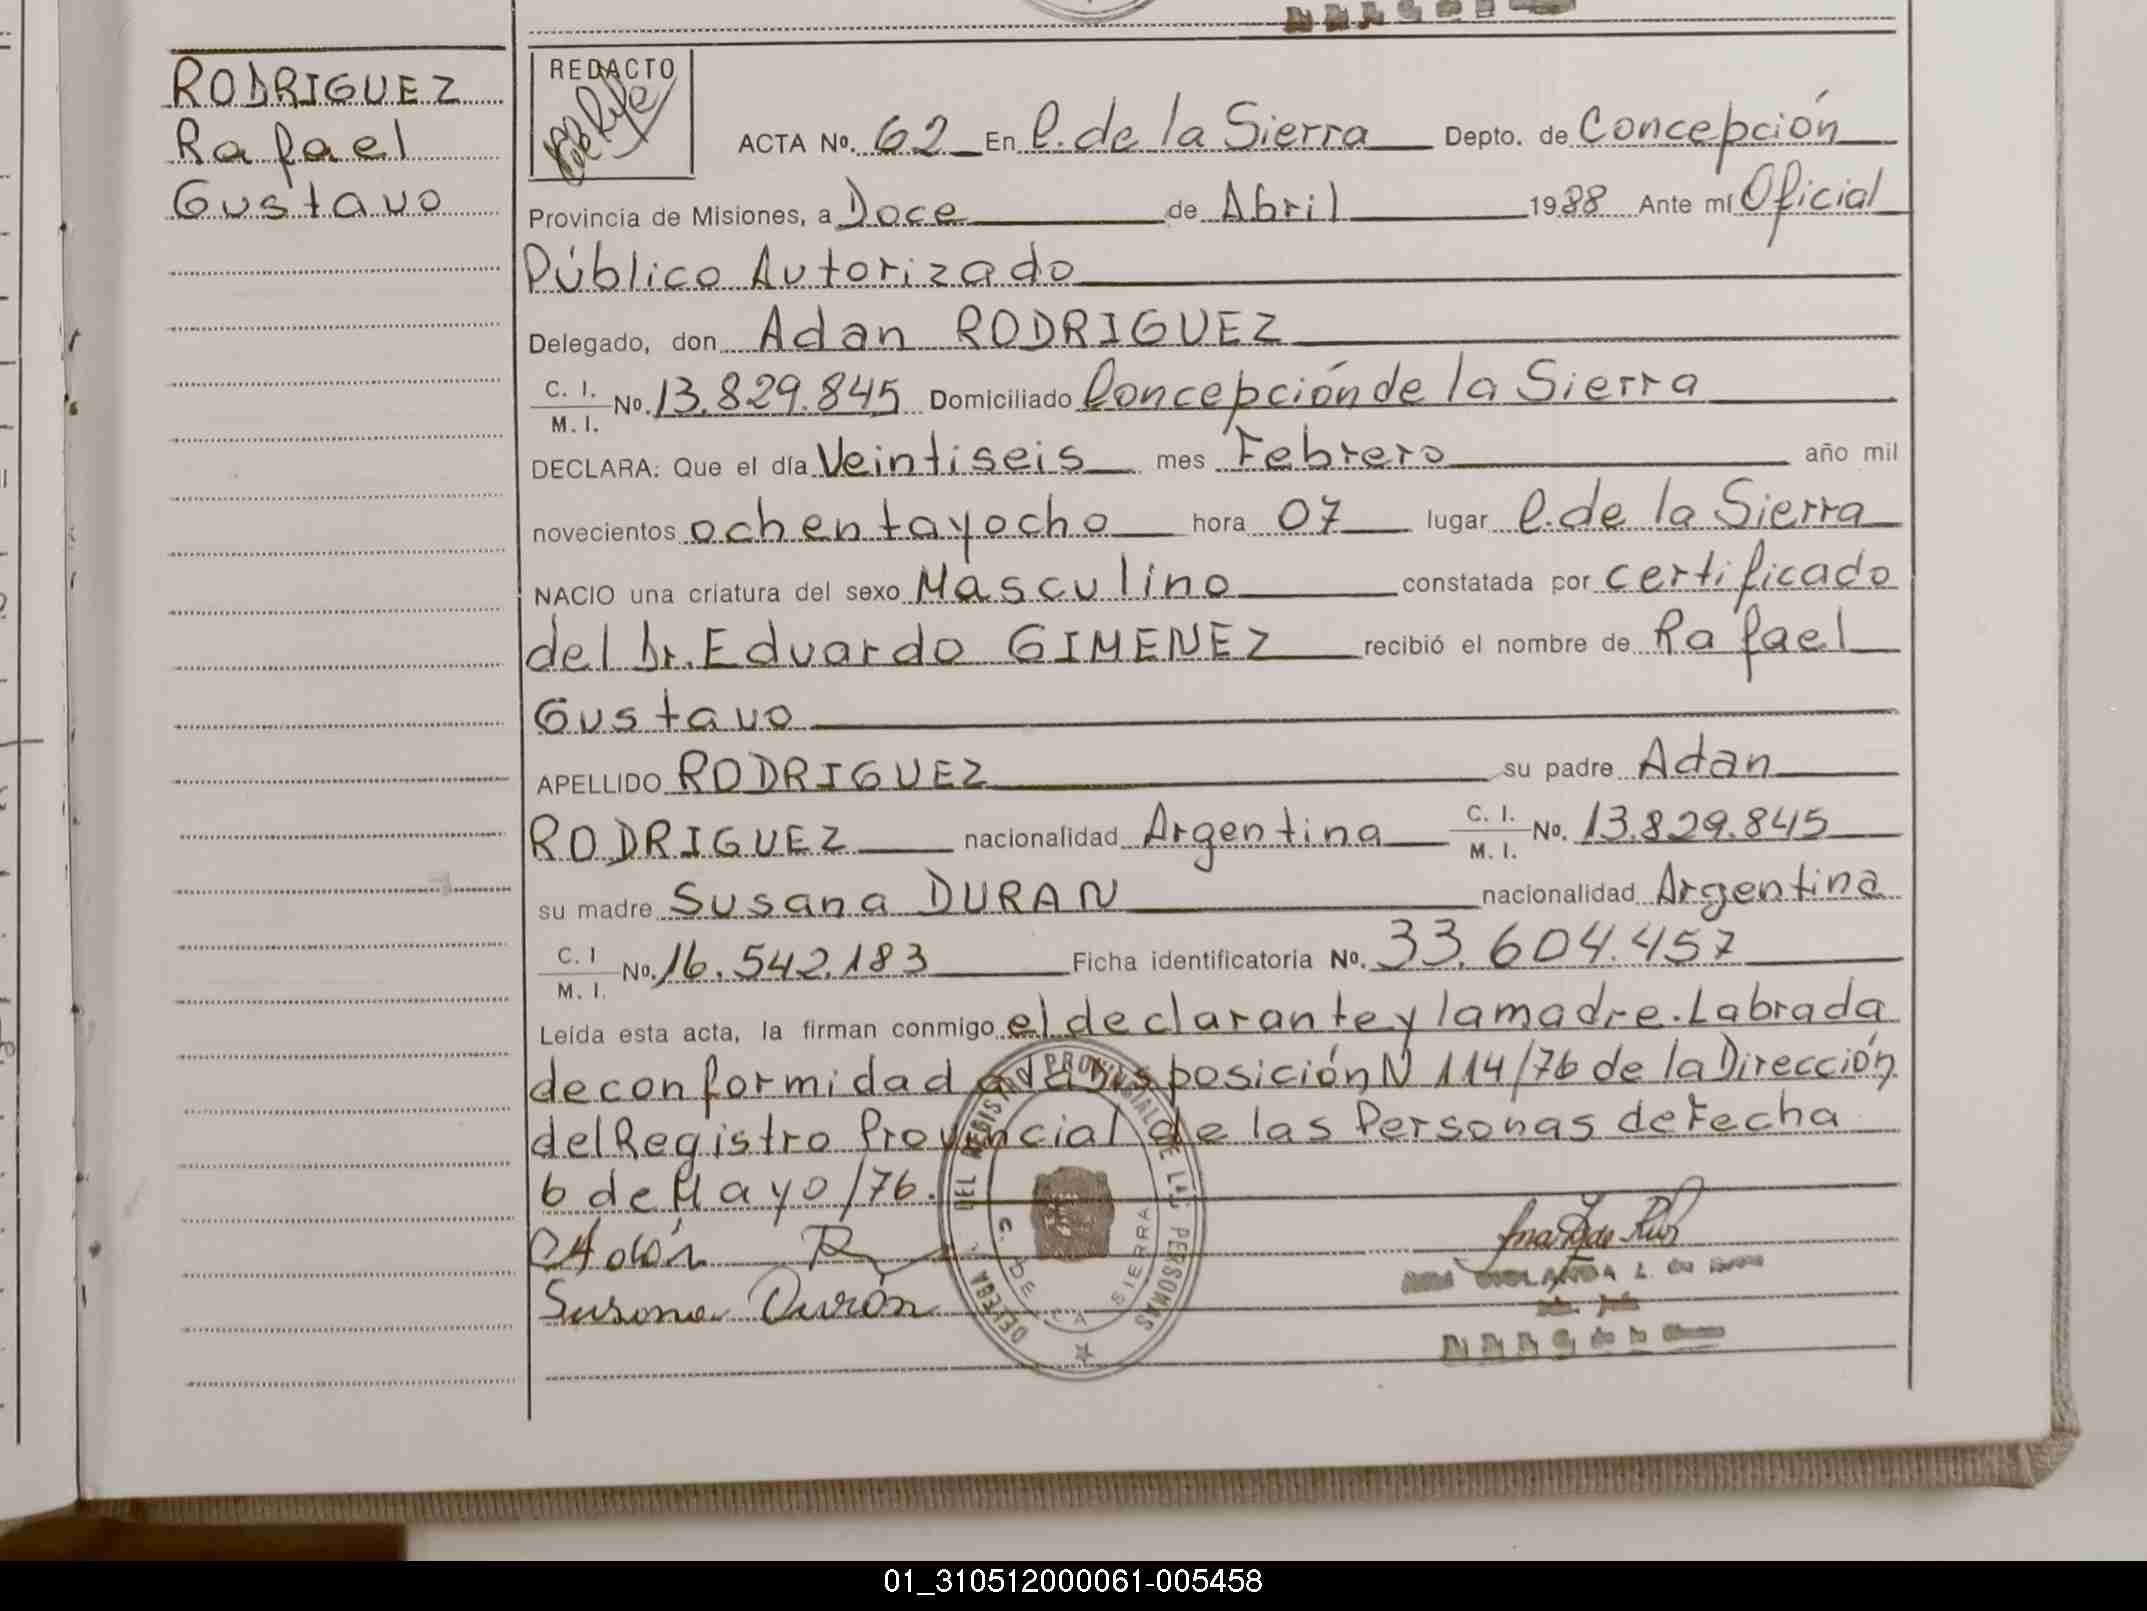 RODRIGUEZ
Rafael
Gustavo
REDACTO
ACTA No. 62 En C. de la Sierra Depto. de Concepción
Provincia de Misiones, a Doce de Abril 1988 Ante mí Oficial
Público Autorizado
Delegado, don Adan RODRIGUEZ
C. I.
M. I. No. 13.829.845 Domiciliado Concepción de la Sierra
DECLARA: Que el día Veintiseis mes Febrero año mil
novecientos ochentayocho hora 07 lugar C. de la Sierra
NACIO una criatura del sexo Masculino constatada por certificado
del Dr. Eduardo GIMENEZ recibió el nombre de Rafael
Gustavo
APELLIDO RODRIGUEZ su padre Adan
RODRIGUEZ nacionalidad Argentina C. I. M. I. No. 13.829.845
su madre Susana DURAN nacionalidad Argentina
C. I
M. I. No. 16.542.183 Ficha identificatoria No. 33.604.457
Leída esta acta, la firman conmigo el declarante y la madre. Labrada
de conformidad a la Disposición N 114/76 de la Dirección
del Registro Provincial de las Personas de Fecha
6 de Mayo/76.
Adán R
Susana Durán
DEL REGISTRO PROVINCIAL DE LAS PERSONAS
C. DE LA SIERRA
01_310512000061-005458